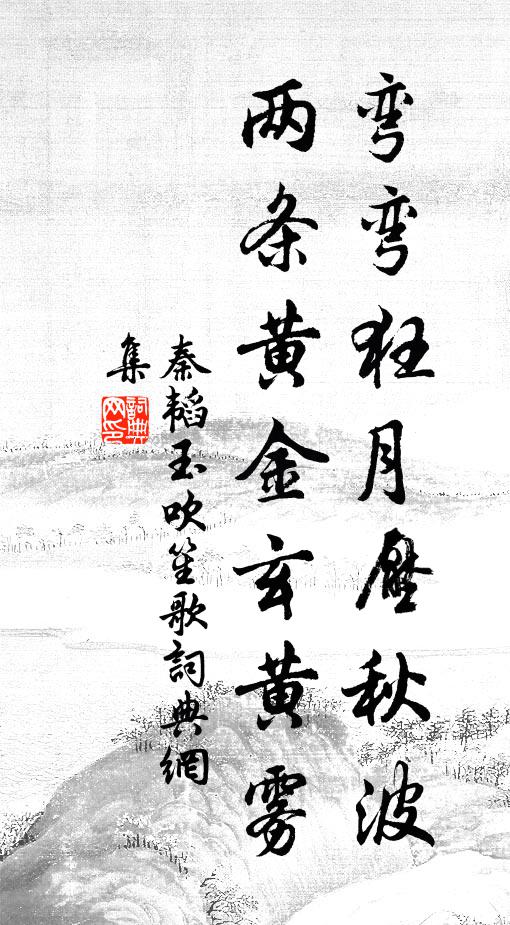 弯弯狂月压秋波
两条黄金玄黄雾
秦韬玉吹笙歌詞典網
集
詞典網印